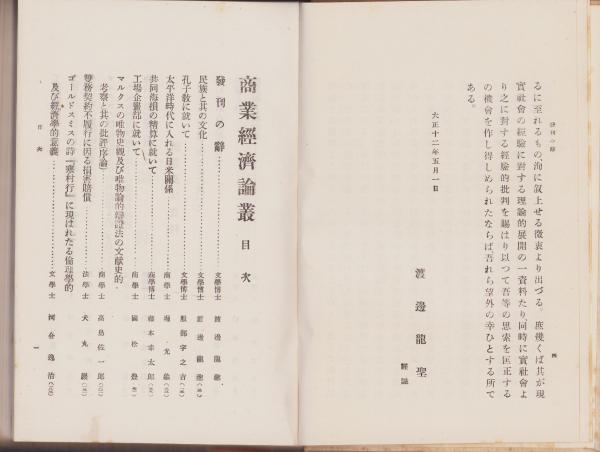 發刊の辭
四
るに至れるもの、洵に叙上せる微衷より出づる。庶幾くば其が現
實社會の經驗に對する理論的展開の一資料たり、同時に實社會よ
り之に對する經驗的批判を賜はり以つて吾等の思索を匡正する
の機會を作し得しめられたならば、吾れら望外の幸ひとする所で
ある。
大正十二年五月一日
渡邊龍聖
謹誌
商業經濟論叢 目次
發刊の辭 文學博士 渡邊龍聖
民族と其の文化 文學博士 渡邊龍聖
孔子敎に就いて 文學博士 服部宇之吉
太平洋時代に入れる日米關係 商學士
共同海損の精算に就いて 商學博士 藤本幸太郎
工場企畫部に就いて 商學士 國松豊
マルクスの唯物史觀及び唯物論的辯證法の文獻史的
考察と其の批評(序論) 商學士 高島佐一郎
雙務契約不履行に因る損害賠償 法學士 犬丸巖
ゴールドスミスの詩『寒村行』に現はれたる倫理學的
及び經濟學的意義 文學士
目次
一